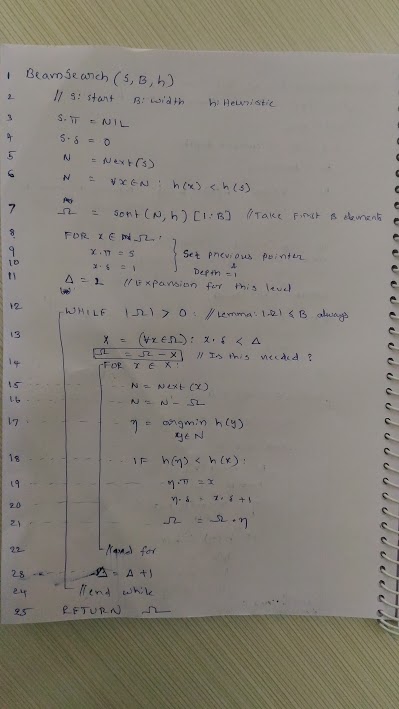 1 BeamSearch (S, B, h)
2 // S: Start B: Width h: Heuristic
3 S.π = NIL
4 S.δ = 0
5 N = Next(S)
6 N = ∀x∈N : h(x) < h(s)
7 Ω = sort (N, h) [1:B] // Take First B elements
8 FOR x ∈ Ω:
9 x.π = S } Set previous pointer
10 x.δ = 1 Depth = 1
11 Δ = 2 // Expansion for this level
12 WHILE |Ω| > 0 : // Lemma: |Ω| ≤ B always
13 X = (∀x∈Ω): x.δ < Δ
Ω = Ω - X // Is this needed ?
14 FOR x ∈ X:
15 N = Next (x)
16 N = N - Ω
17 η = argmin h(y)
y∈N
18 IF h(η) < h(x) :
19 η.π = x
20 η.δ = x.δ + 1
21 Ω = Ω . η
22 // end for
23 Δ = Δ + 1
24 // end while
25 RETURN Ω